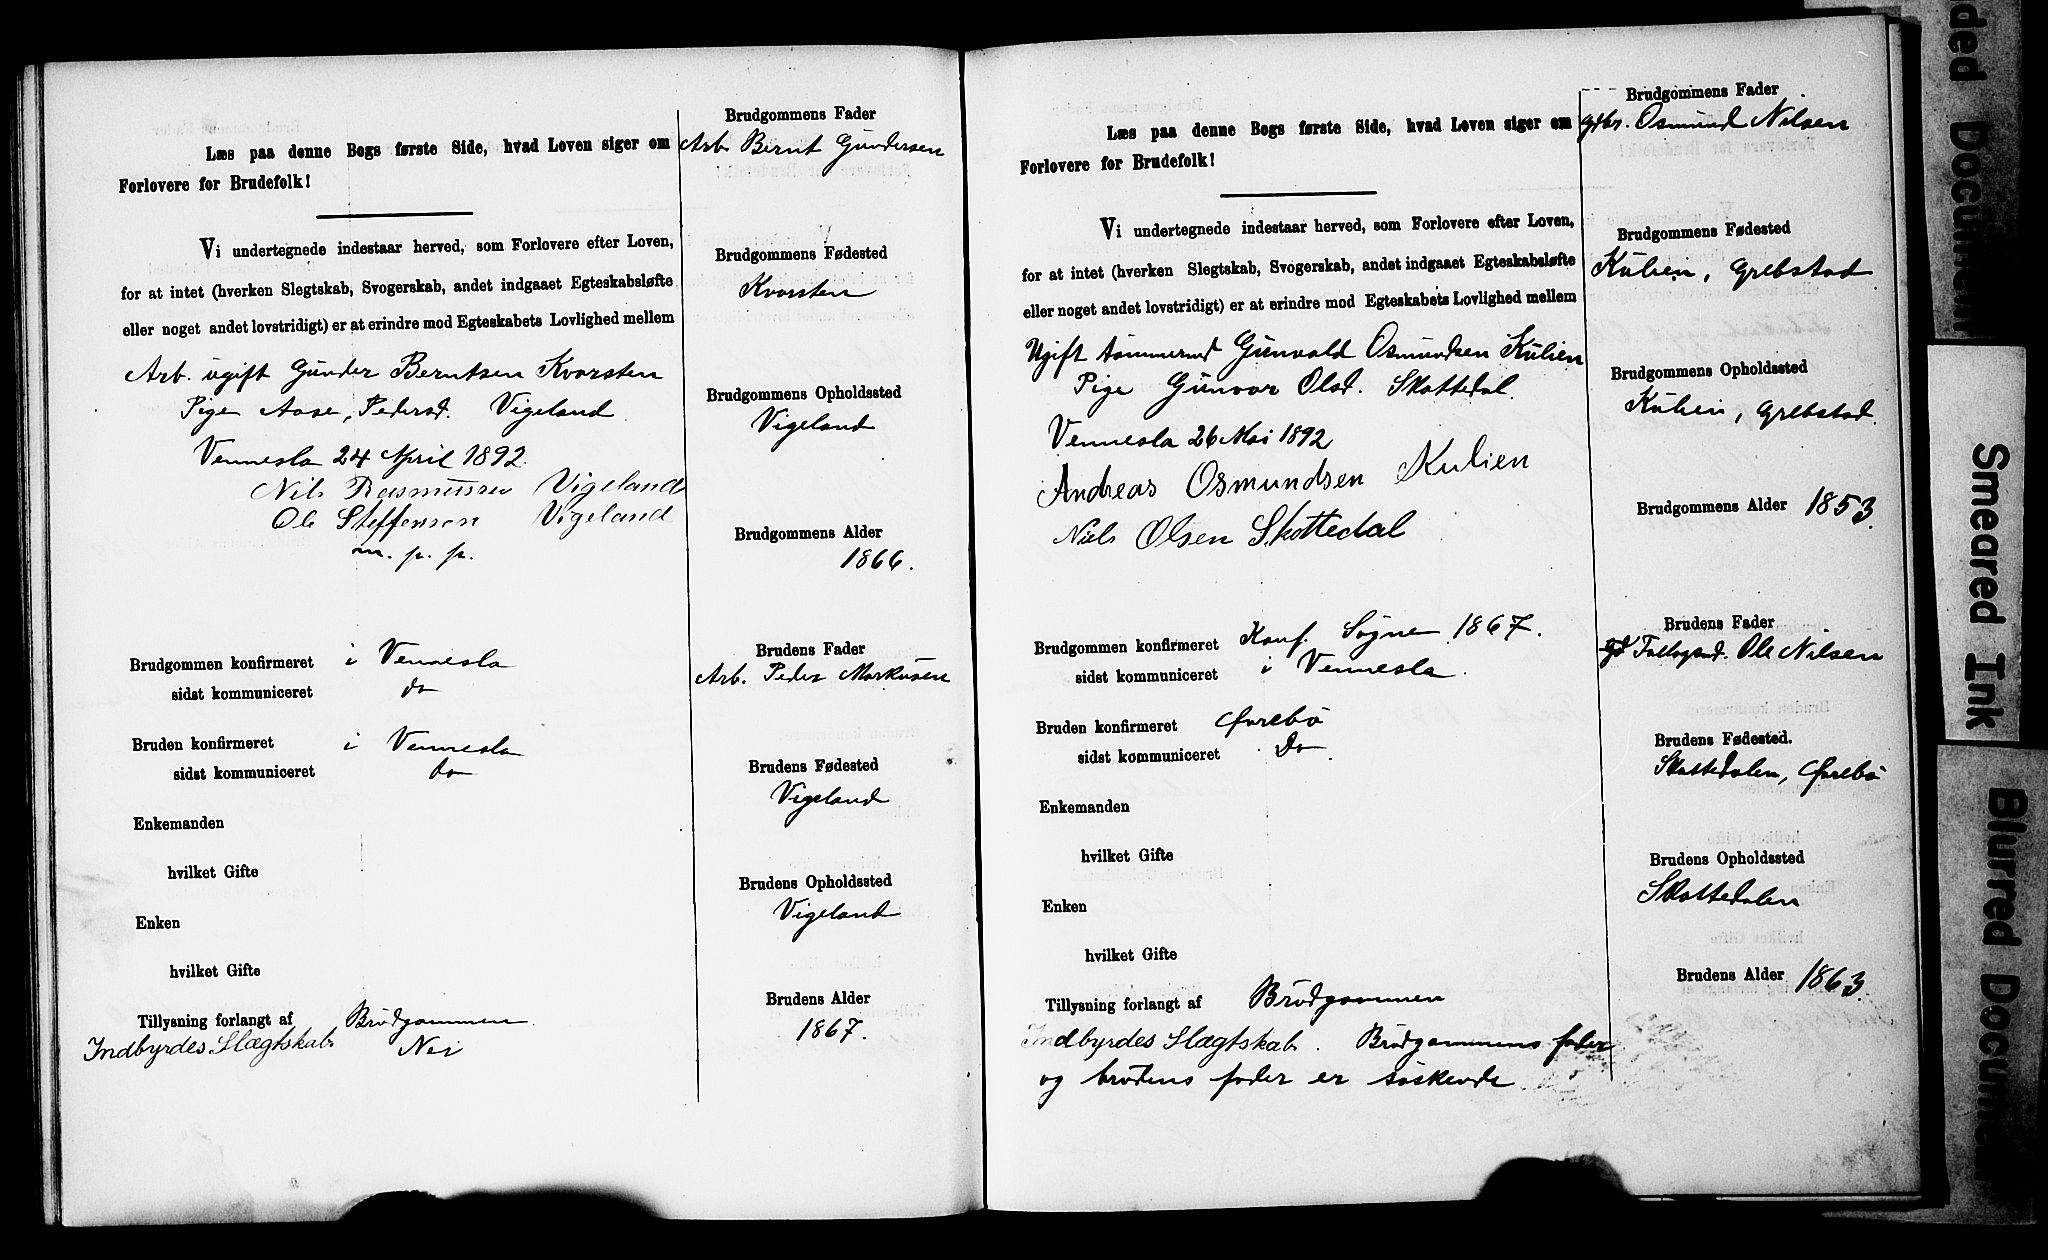 Læs paa denne Bogs første Side, hvad Loven siger om
Forlovere for Brudefolk!
Vi undertegnede indestaar herved, som Forlovere efter Loven,
for at intet (hverken Slegtskab, Svogerskab, andet indgaaet Egteskabsløfte
eller noget andet lovstridigt) er at erindre mod Egteskabets Lovlighed mellem
Arb. ugift Gunder Berntsen Kvarsten
Pige Aase, Pedersd. Vigeland
Vennesla 24 April 1892.
Nils Rasmussen Vigeland
Ole Steffensen Vigeland
m. p. p.
Brudgommen konfirmeret i Vennesla
sidst kommuniceret do
Bruden konfirmeret i Vennesla
sidst kommuniceret do
Enkemanden
hvilket Gifte
Enken
hvilket Gifte
Tillysning forlangt af Brudgommen.
Indbyrdes Slægtskab Nei
Brudgommens Fader
Arb. Bernt Gundersen
Brudgommens Fødested
Kvarsten
Brudgommens Opholdssted
Vigeland
Brudgommens Alder
1866.
Brudens Fader
Arb. Peder Markusen
Brudens Fødested
Vigeland
Brudens Opholdssted
Vigeland
Brudens Alder
1867.
Læs paa denne Bogs første Side, hvad Loven siger om
Forlovere for Brudefolk!
Vi undertegnede indestaar herved, som Forlovere efter Loven,
for at intet (hverken Slegtskab, Svogerskab, andet indgaaet Egteskabsløfte
eller noget andet lovstridigt) er at erindre mod Egteskabets Lovlighed mellem
Ugift tømmermd Gunvald Osmundsen Kulien
Pige Gunvor Olsd. Skottedal.
Vennesla 26 Mai 1892
Andreas Osmundsen Kulien
Niels Olsen Skottedal
Brudgommen konfirmeret Konf. Søgne 1867.
sidst kommuniceret i Vennesla.
Bruden konfirmeret Øvrebø
sidst kommuniceret Do.
Enkemanden
hvilket Gifte
Enken
hvilket Gifte
Tillysning forlangt af Brudgommen
Indbyrdes Slægtskab. Brudgommens fader
og brudens fader er søskende.
Brudgommens Fader
gdbr. Osmund Nilsen
Brudgommens Fødested
Kulien, Grebstad
Brudgommens Opholdssted
Kulien, Grebstad.
Brudgommens Alder 1853.
Brudens Fader
Ole Nilsen
Brudens Fødested.
Skottedalen, Øvrebø
Brudens Opholdssted
Skottedalen
Brudens Alder 1863.
ded Documen
Smeared Ink
Blurred Docum